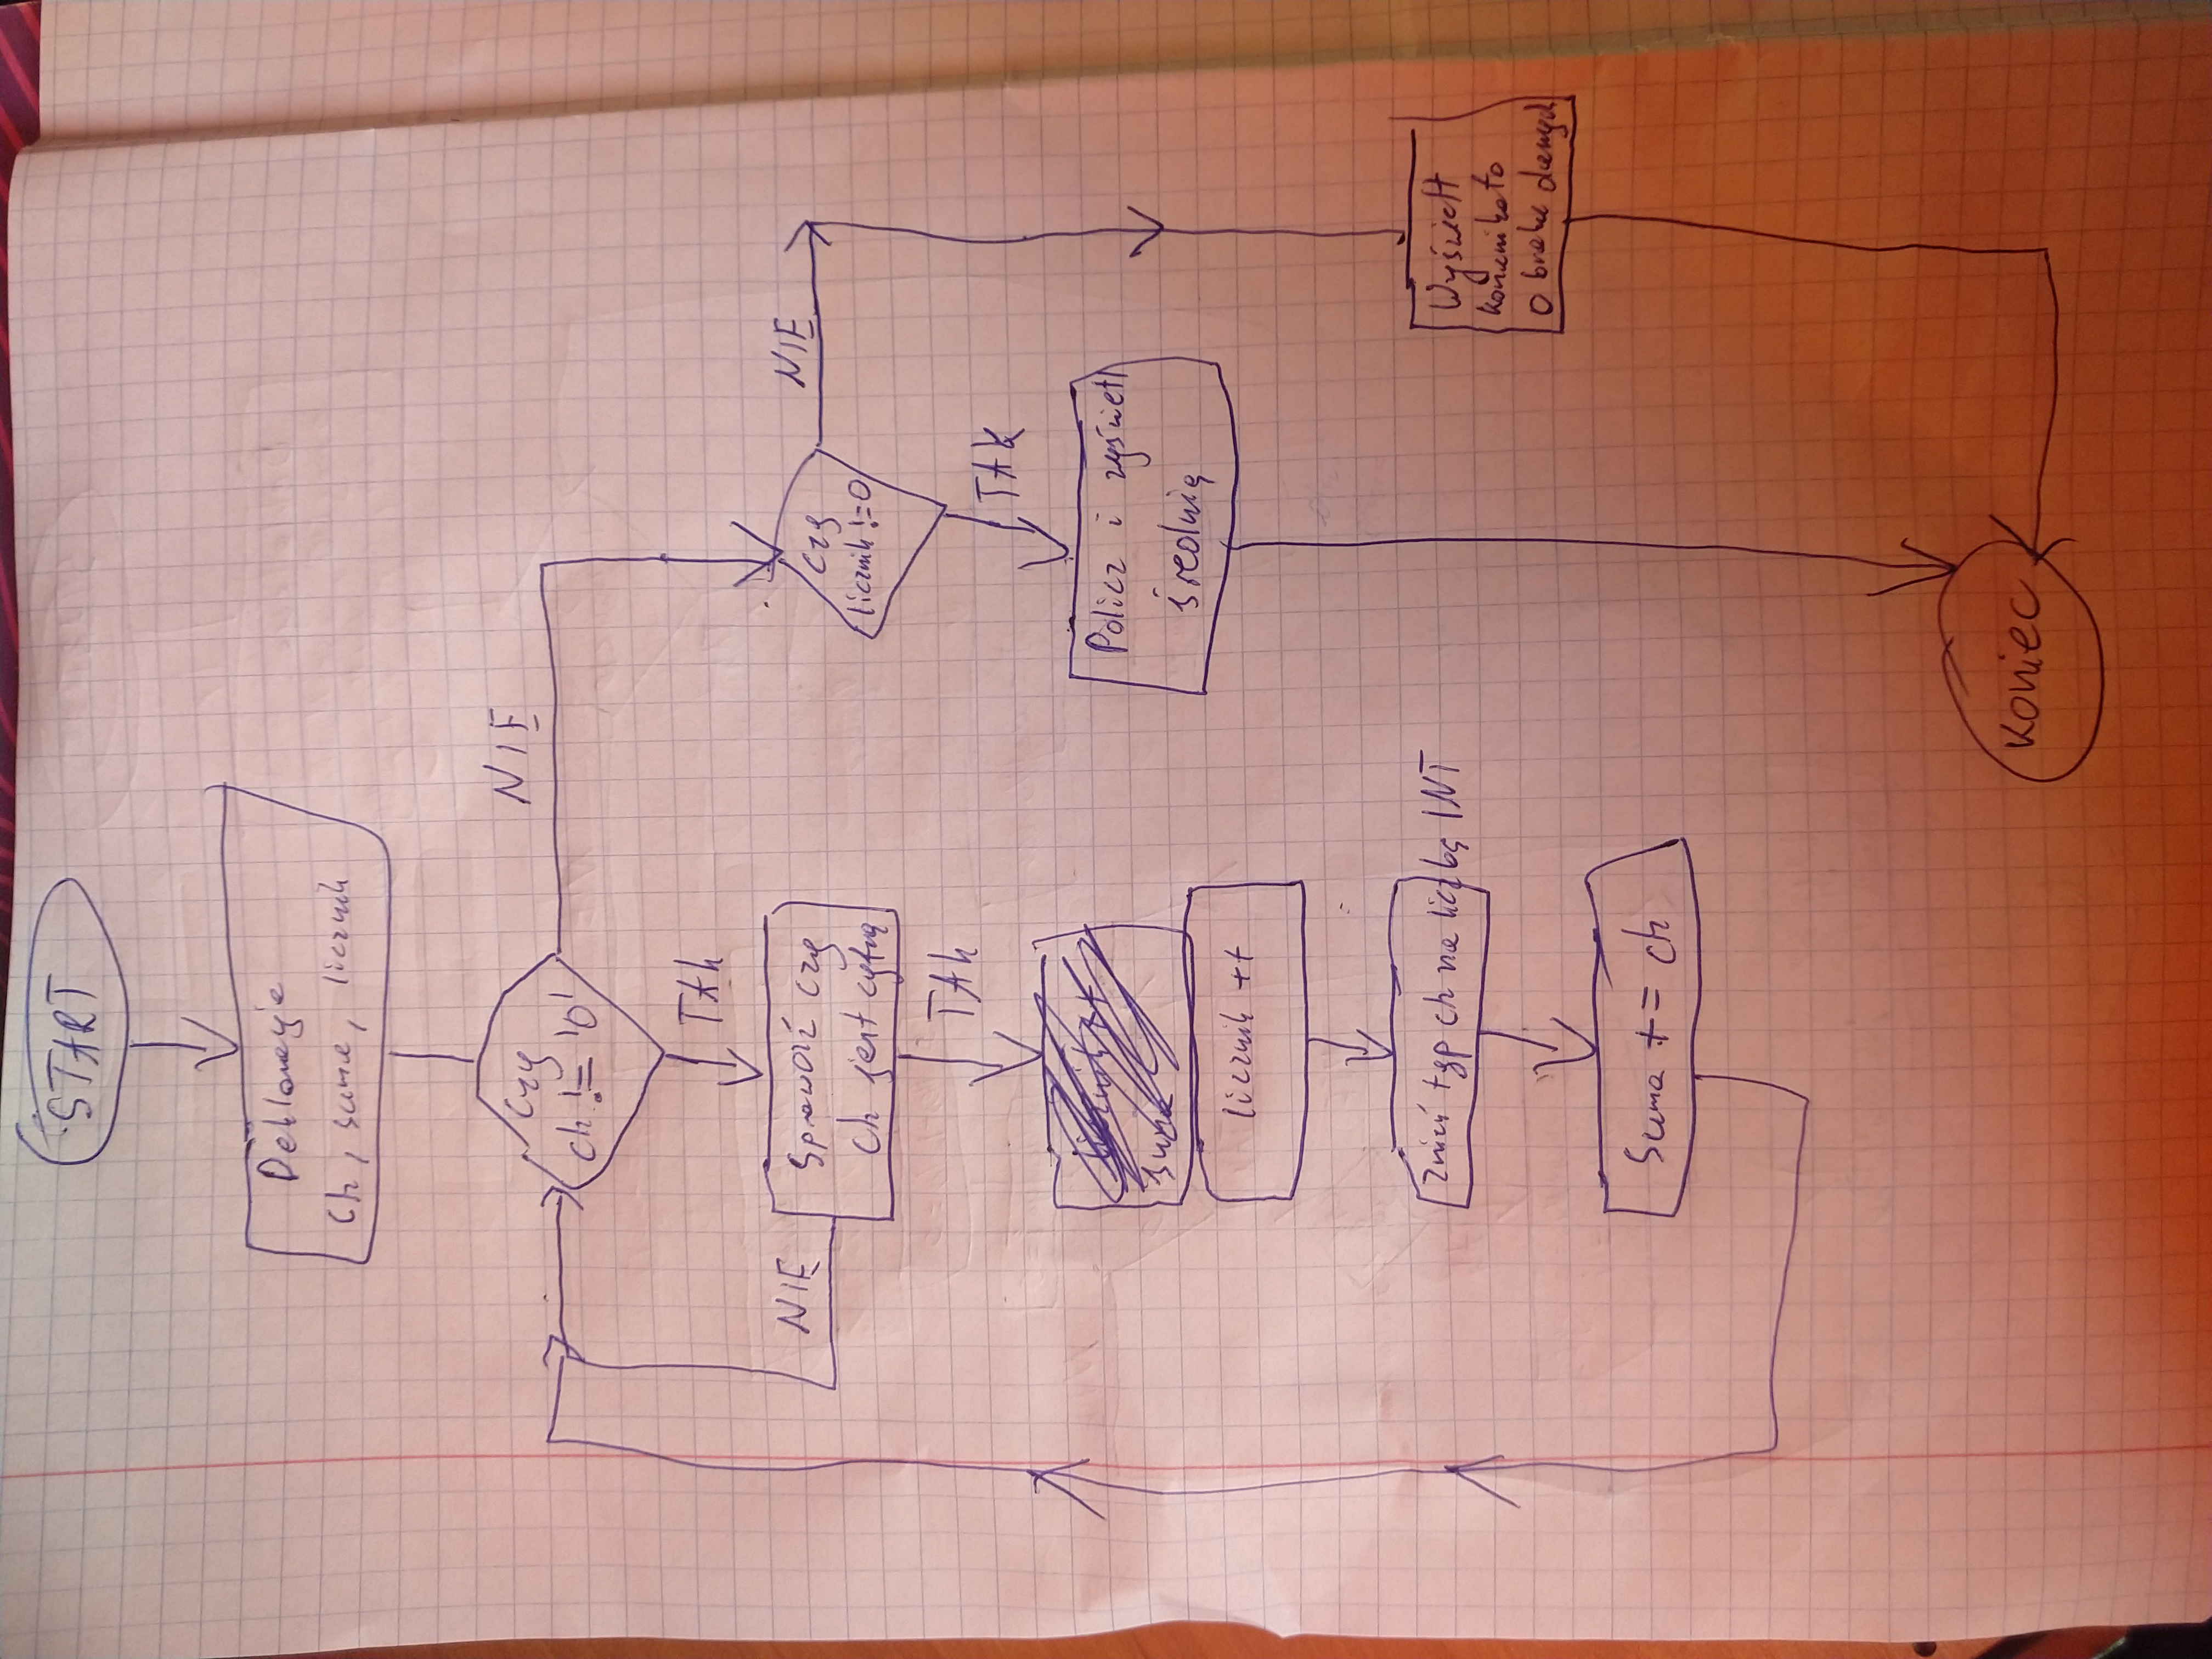 START
Deklaracja
ch, suma, licznik
Czy
ch != '0'
NIE
TAK
NIE
Sprawdź czy
ch jest cyfrą
TAK
licznik ++
suma
licznik ++
Zmień typ ch na liczbę INT
Suma += ch
Czy
licznik != 0
NIE
TAK
Policz i wyświetl
średnią
Wyświetl
komunikat o
o braku danych
koniec